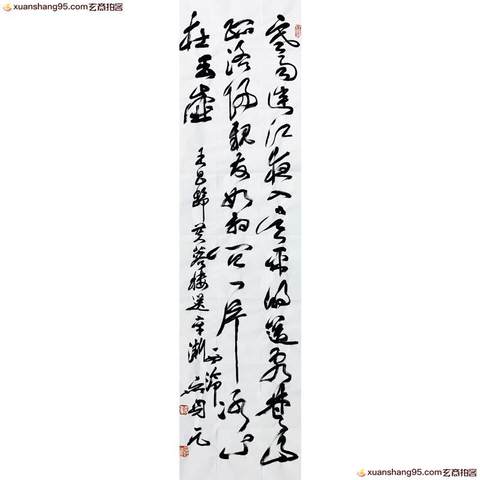 xuanshang95.com玄商拍客
寒雨連江夜入吳平明送客楚山
孤洛陽親友如相問一片冰心
在玉壺
王昌齡芙蓉樓送辛漸
西泠
xuanshang95.com玄商拍客